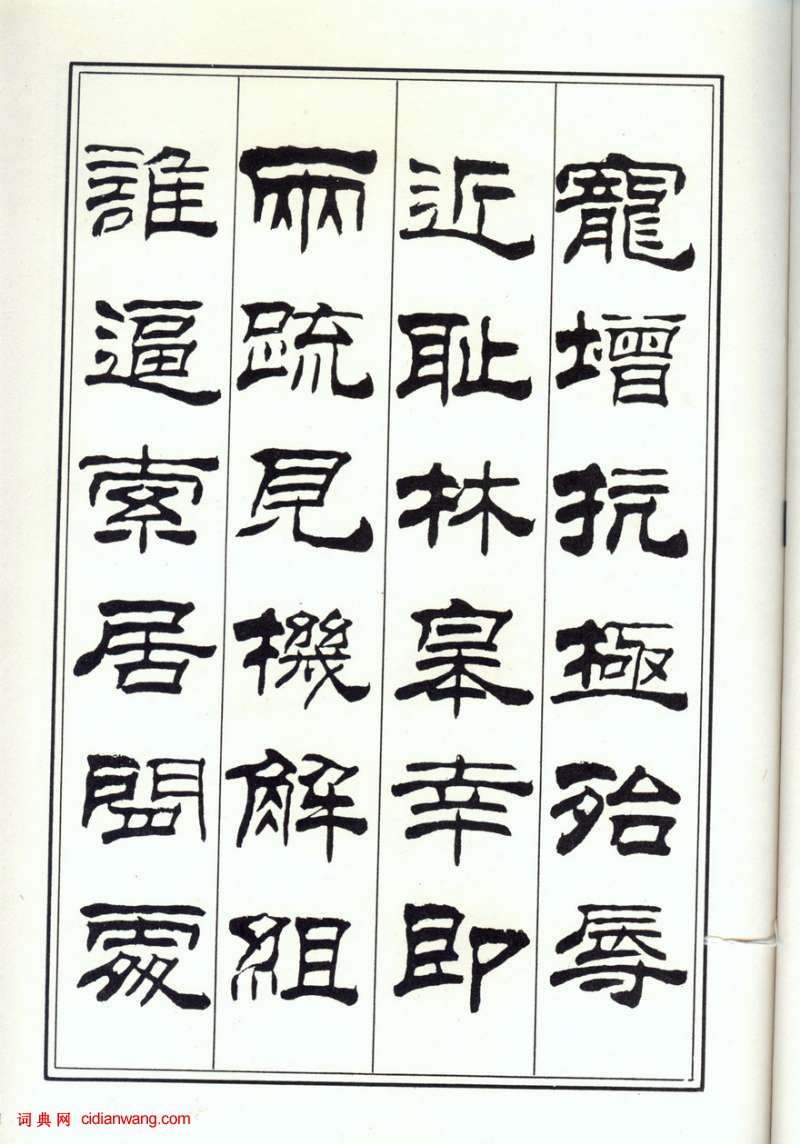 寵增抗極殆辱
近耻林皋幸即
兩疏見機解組
誰逼索居閒處
词典网 cidianwang.com